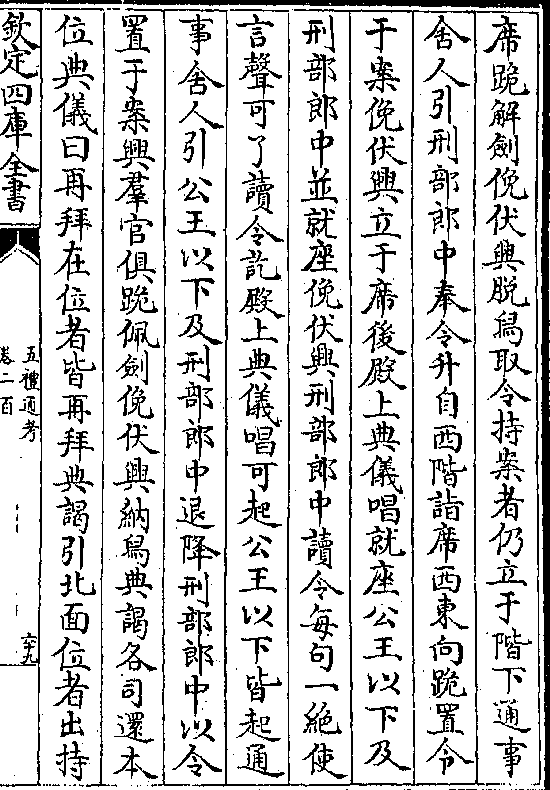 席跪解劍俛伏興脱舄取令持案者仍立于階下通事
舍人引刑部郎中奉令升自西階詣席西東向跪置令
于案俛伏興立于席後殿上典儀唱就座公王以下及
刑部郎中並就座俛伏興刑部郎中讀令每句一絶使
言聲可了讀令訖殿上典儀唱可起公王以下皆起通
事舍人引公王以下及刑部郎中退降刑部郎中以令
置于案興羣官俱跪佩劍俛伏興納舄典謁各司還本
位典儀曰再拜在位者皆再拜典謁引北面位者出持
欽定四庫全書
五禮通考
卷二百
六十九